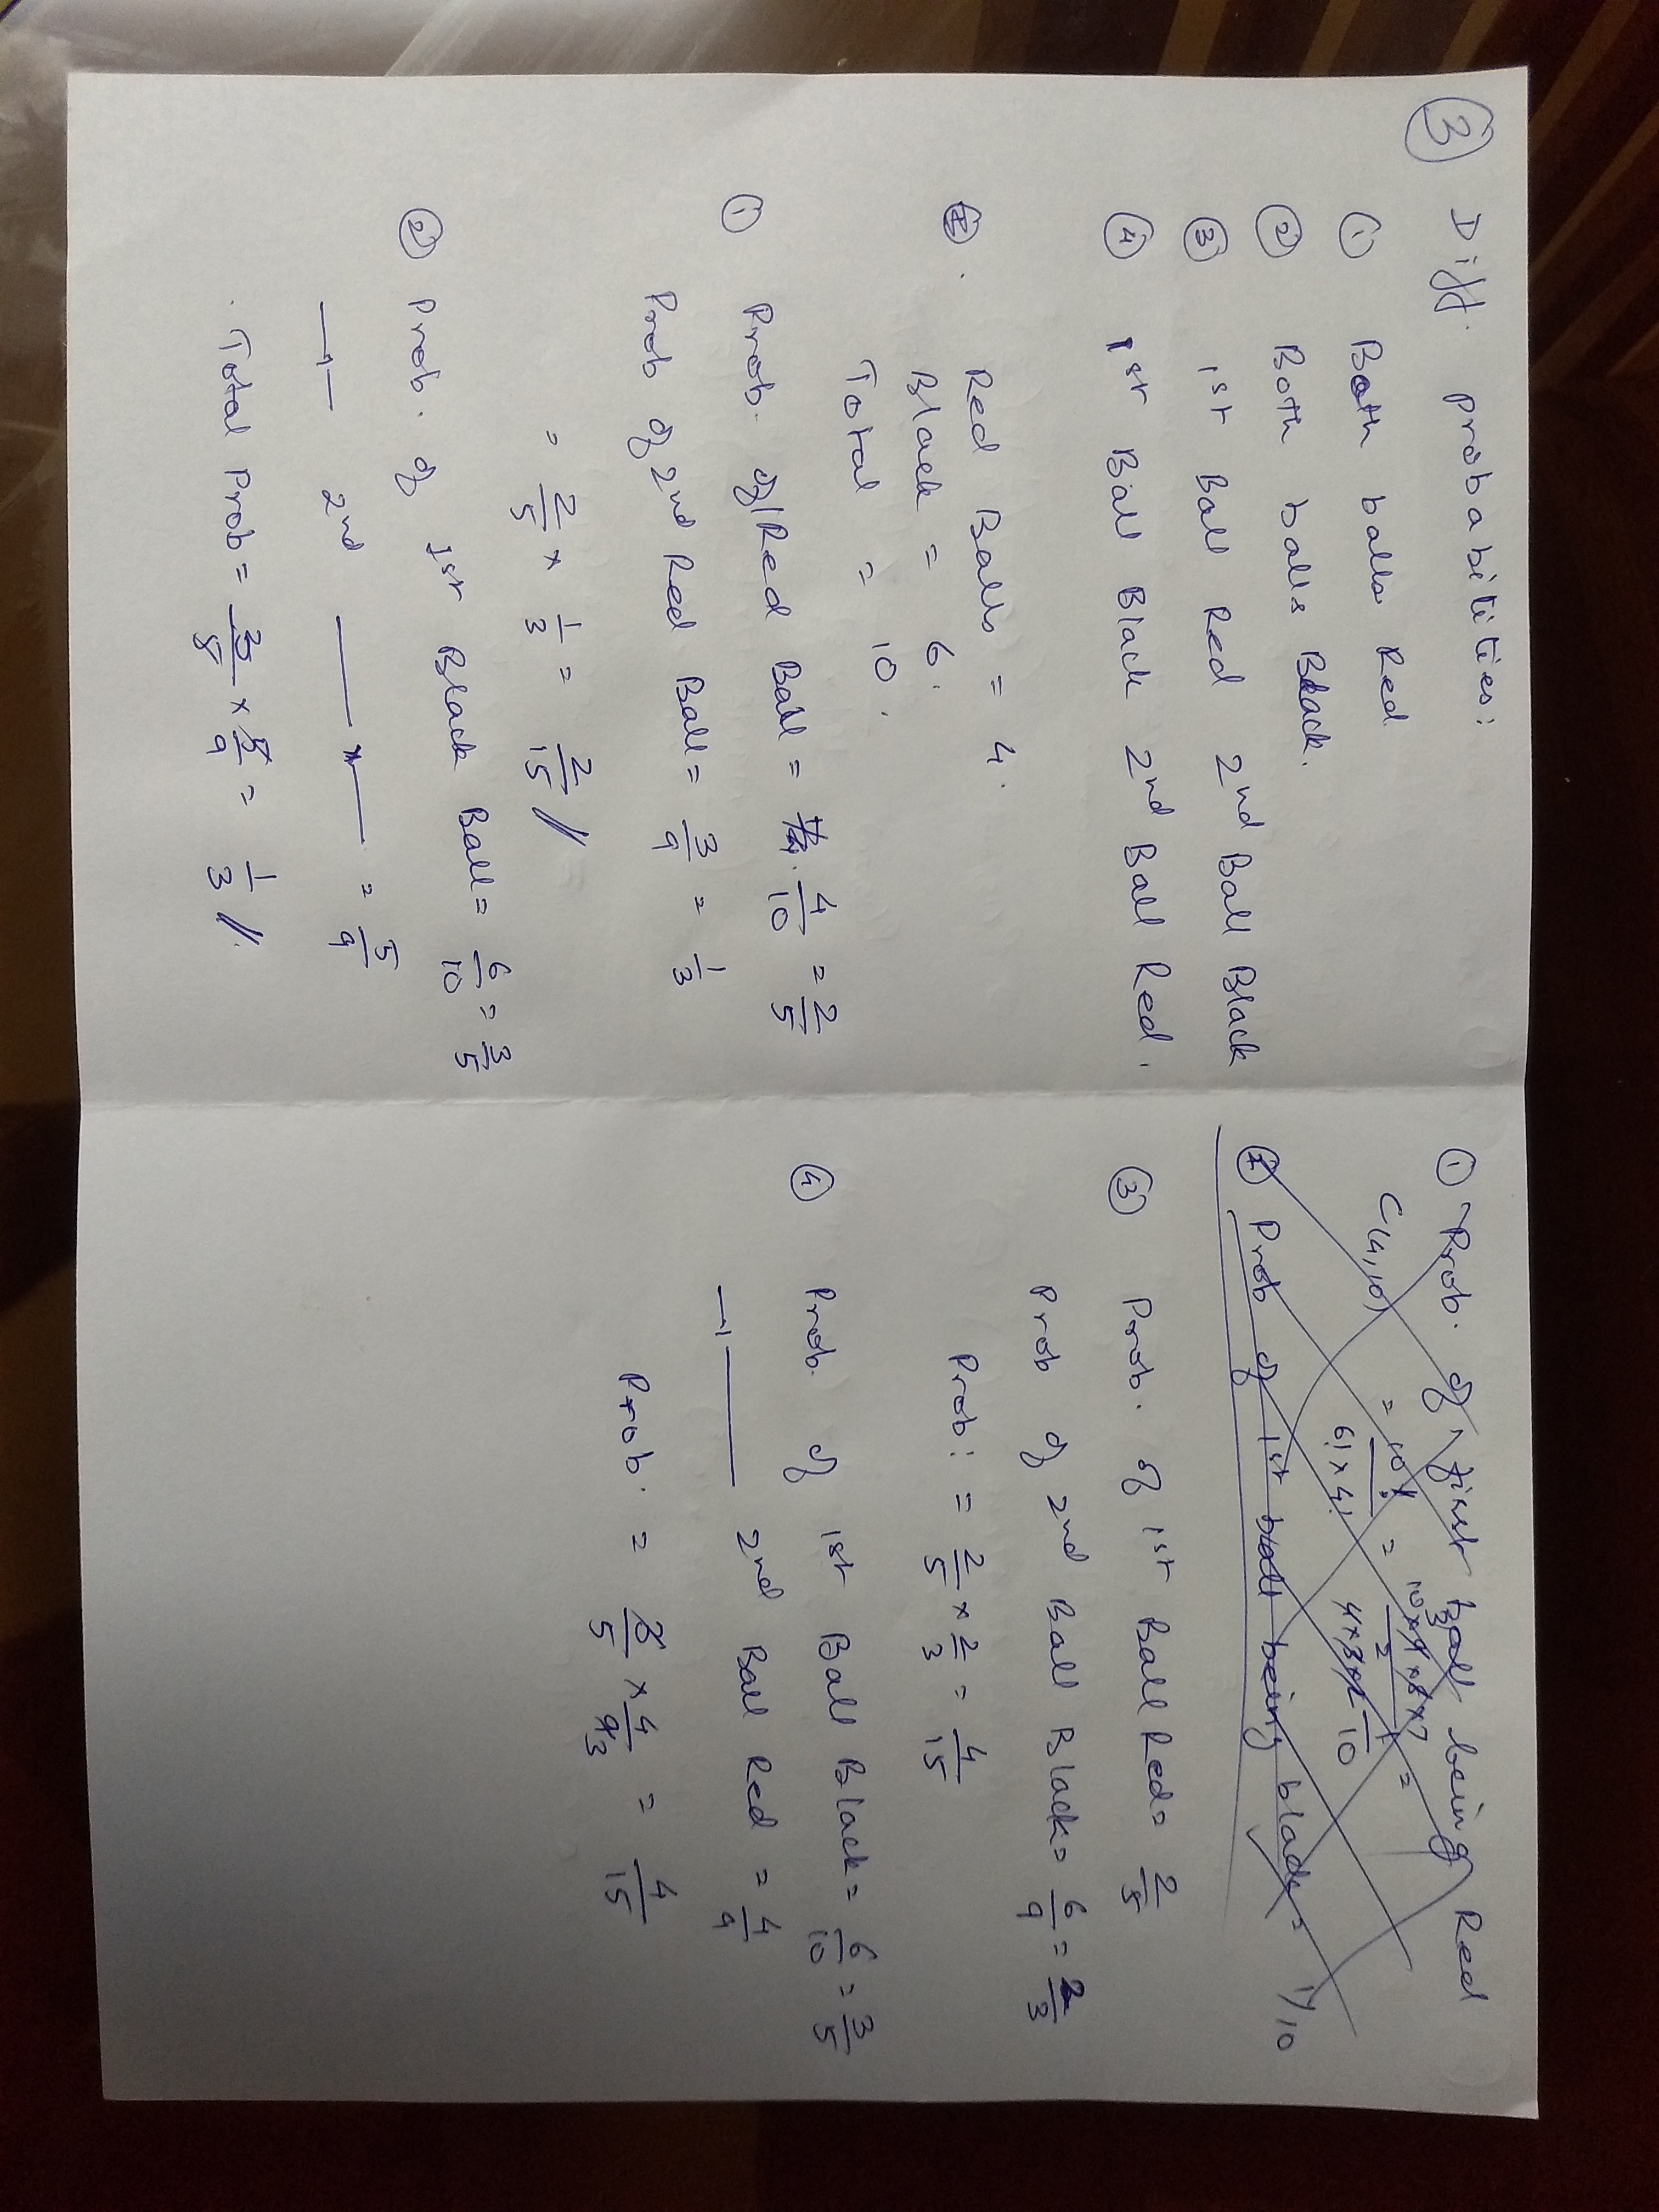 ③ Diff. probabilities:
① Both balls Red
② Both balls Black.
③ 1st Ball Red 2nd Ball Black
④ 1st Ball Black 2nd Ball Red.
Red Balls = 4.
Black = 6.
Total = 10.
① Prob. of 1 Red Ball = 4/10 = 2/5
Prob of 2nd Red Ball = 3/9 = 1/3
= 2/5 × 1/3 = 2/15 //
② Prob. of 1st Black Ball = 6/10 = 3/5
—"— 2nd —"— = 5/9
Total Prob = 3/5 × 5/9 = 1/3 //.
① Prob. of first ball being Red
C(4,10) = 10!/6!×4! = 10×9×8×7/4×3×2 =
Prob of 1st ball being black = 1/10
③ Prob. of 1st Ball Red = 2/5
Prob of 2nd Ball Black = 6/9 = 2/3
Prob: = 2/5 × 2/3 = 4/15
④ Prob. of 1st Ball Black = 6/10 = 3/5
—"— 2nd Ball Red = 4/9
Prob. = 3/5 × 4/9 3 = 4/15